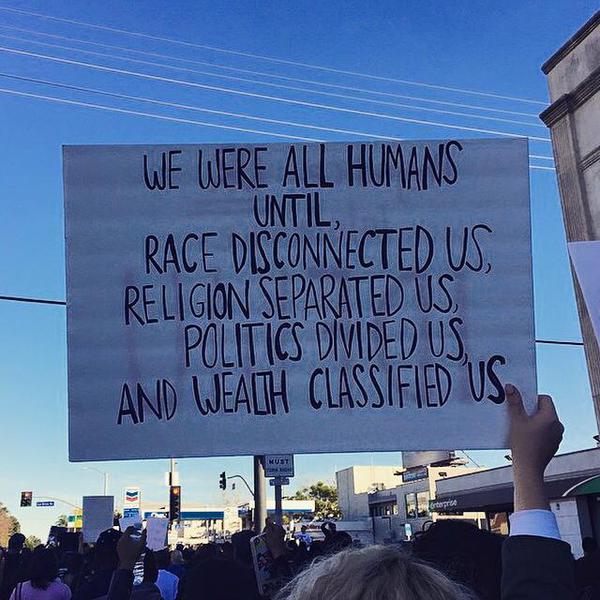 WE WERE ALL HUMANS
UNTIL,
RACE DISCONNECTED US,
RELIGION SEPARATED US,
POLITICS DIVIDED US,
AND WEALTH CLASSIFIED US
MUST
TURN RIGHT
enterprise